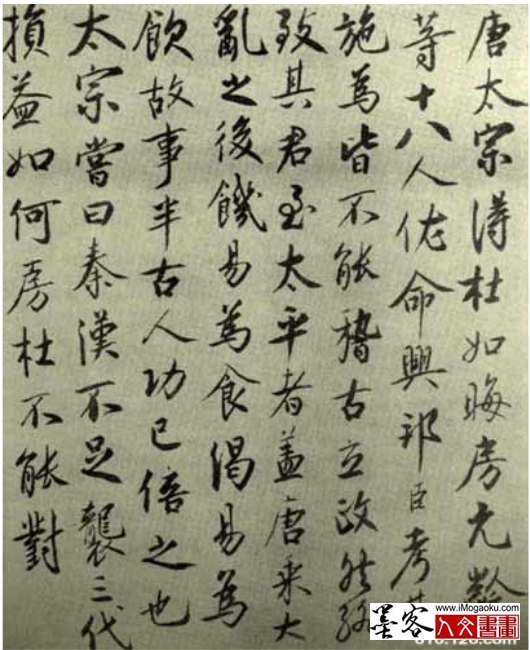 唐太宗得杜如晦房元齡
等十八人佐命興邦臣考其
施為皆不能稽古立政然能
致其君至太平者蓋唐乘大
亂之後饑易為食渴易為
飲故事半古人功已倍之也
太宗嘗曰秦漢不足襲三代
損益如何房杜不能對
www.iMogaoku.com
墨客
人文書畫